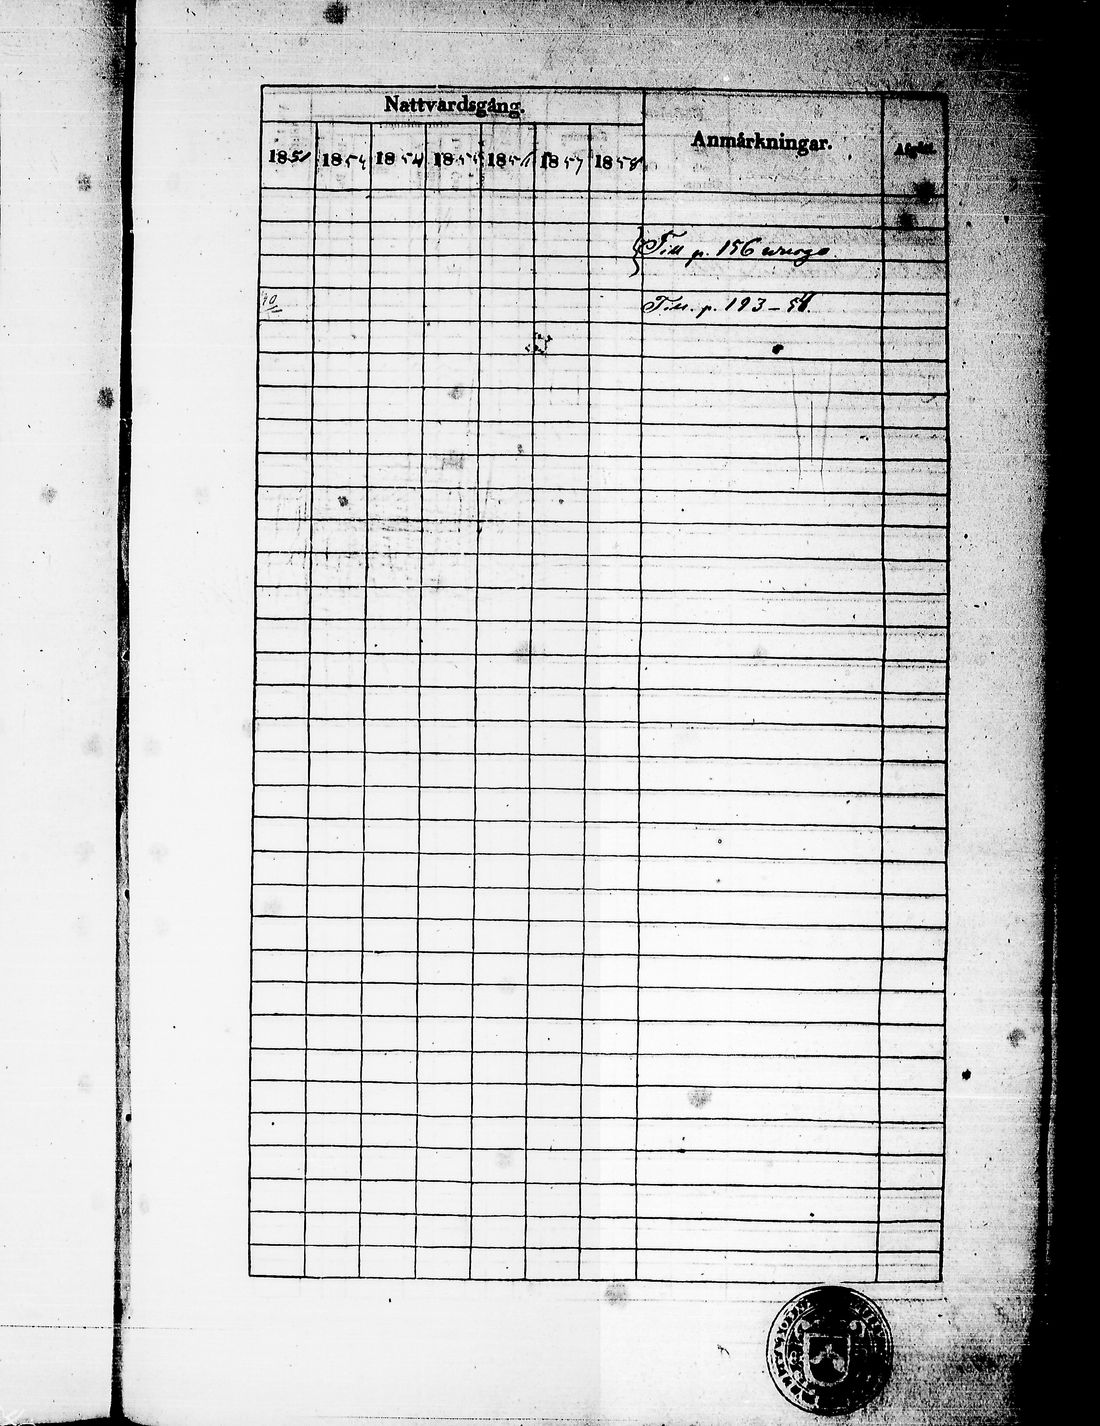 Nattvardsgång.
Anmärkningar.
1851 1854 1855 1856 1857 1858
Till p. 156
10
Till. p. 193 - 54.